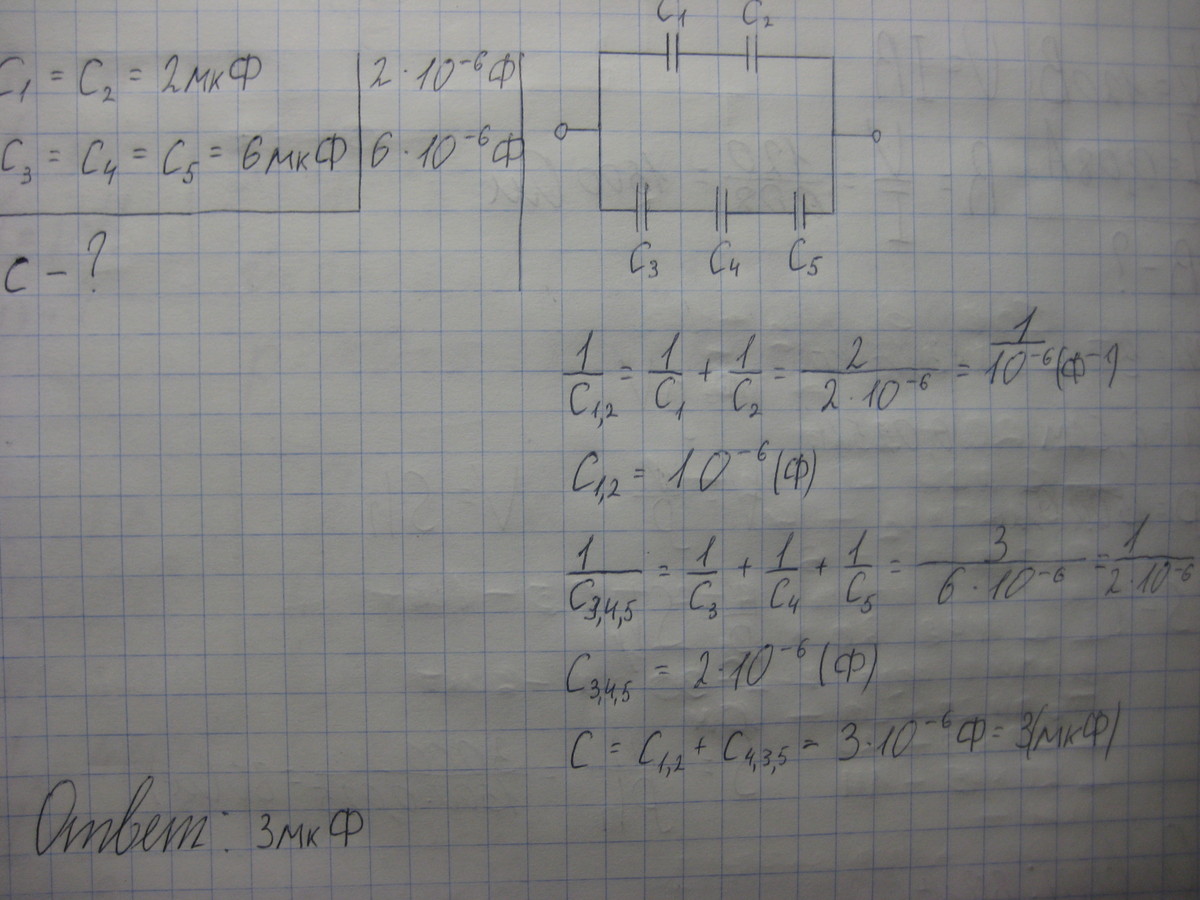 C₁ = C₂ = 2мкФ | 2·10⁻⁶Ф
C₃ = C₄ = C₅ = 6мкФ | 6·10⁻⁶Ф
C - ?
C₁ C₂
C₃ C₄ C₅
1/C₁,₂ = 1/C₁ + 1/C₂ = 2/(2·10⁻⁶) = 1/10⁻⁶ (Ф⁻¹)
C₁,₂ = 10⁻⁶ (Ф)
1/C₃,₄,₅ = 1/C₃ + 1/C₄ + 1/C₅ = 3/(6·10⁻⁶) = 1/(2·10⁻⁶)
C₃,₄,₅ = 2·10⁻⁶ (Ф)
C = C₁,₂ + C₄,₃,₅ = 3·10⁻⁶Ф = 3(мкФ)
Ответ: 3мкФ